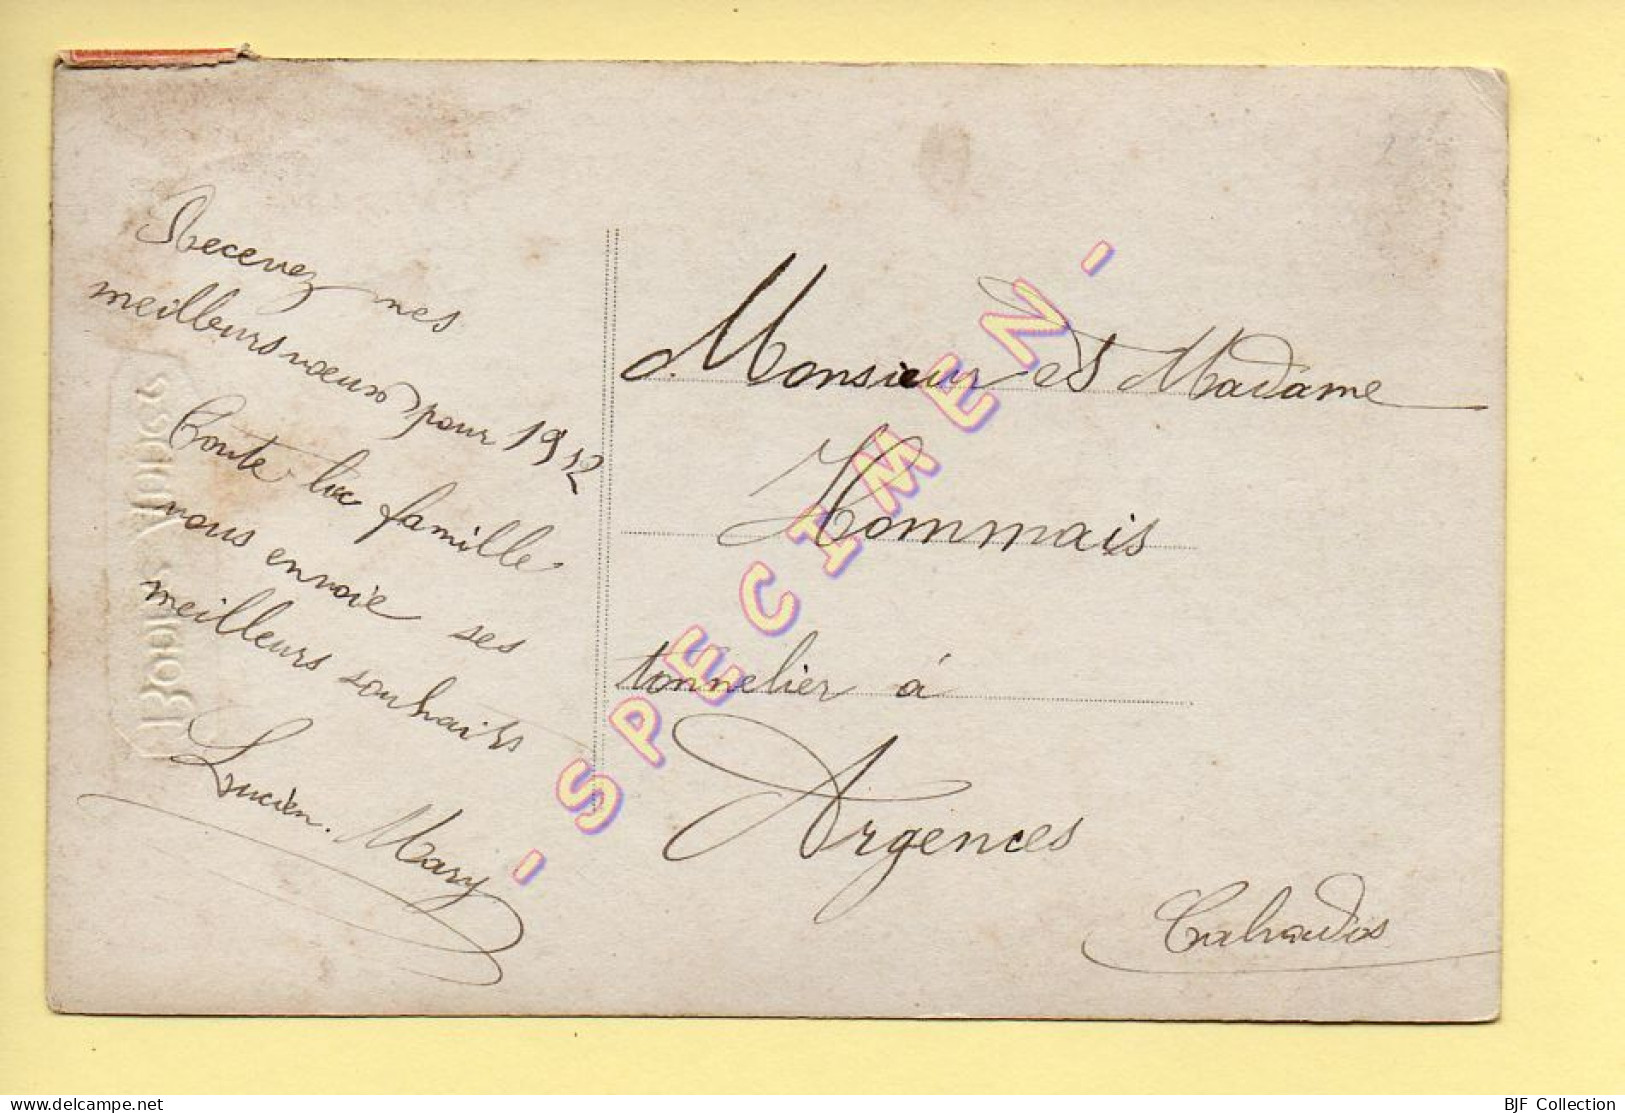 Recevez mes
meilleurs vœux pour 1912
Toute la famille
vous envoie ses
meilleurs souhaits
Lucien. Mary
Monsieur et Madame
Hommais
tonnelier à
Argences
Calvados
- SPECIMEN -
BJF Collection